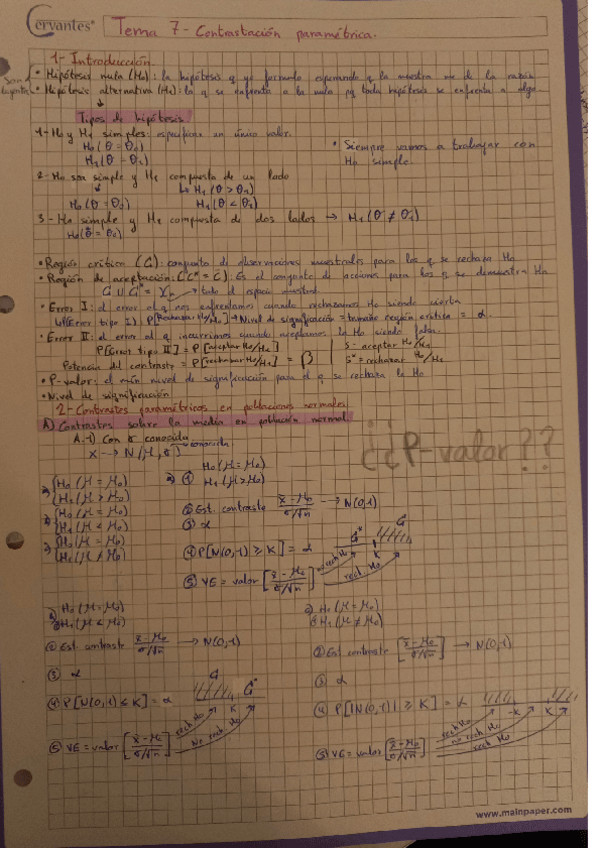 Cervantes®
Tema 7 - Contrastación paramétrica.
1- Introducción.
• Hipótesis nula (H₀): la hipótesis q yo formulo esperando q la muestra me de la razón
• Hipótesis alternativa (H₁): la q se enfrenta a la nula pq toda hipótesis se enfrenta a algo
↓
Tipos de hipótesis
1- H₀ y H₁ simples: especifican un único valor.
H₀ (θ = θ₀)
H₁ (θ = θ₁)
• Siempre vamos a trabajar con
H₀ simple.
2- H₀ son simple y H₁ compuesta de un lado
H₀ (θ = θ₀)
↳ H₁ (θ > θ₁)
H₁ (θ < θ₁)
3- H₀ simple y H₁ compuesta de dos lados → H₁ (θ ≠ θ)
H₀ (θ = θ₀)
• Región crítica (C): conjunto de observaciones muestrales para los q se rechaza H₀
• Región de aceptación: (C* = C̄): Es el conjunto de acciones para los q se demuestra H₀
C U C* = → todo el espacio muestral.
• Error I: el error al q nos enfrentamos cuando rechazamos H₀ siendo cierta
(Error tipo I) P[rechazar H₀/H₀] → Nivel de significación = tamaño región crítica = α.
• Error II: el error al q incurrimos cuando aceptamos la H₀ siendo falsa.
P[Error tipo II] = P[aceptar H₀/H₁]
Potencia del contraste = P[rechazar H₀/H₁] = β
S = aceptar H₀/H₁
S* = rechazar H₀/H₁
• P-valor: el mín nivel de significación para el q se rechaza la H₀
• Nivel de significación
2- Contrastes paramétricos en poblaciones normales
A) Contrastes sobre la media en población normal.
A.1) Con σ conocida
X → N(μ, σ) conocida.
¿¿P-valor??
{H₀ (μ = μ₀)
{H₁ (μ > μ₀)
{H₀ (μ = μ₀)
{H₁ (μ < μ₀)
{H₀ (μ = μ₀)
{H₁ (μ ≠ μ₀)
a) ① H₀ (μ = μ₀)
H₁ (μ > μ₀)
② Est. contraste x̄ - μ₀ / σ/√n → N(0,1)
③ α
④ P[N(0,1) ≥ K] = α
C* C
K
⑤ VE = valor [x̄ - μ₀ / σ/√n]
no rech H₀
rech. H₀
H₀ (μ = μ₀)
H₁ (μ < μ₀)
② Est contraste x̄ - μ₀ / σ/√n → N(0,1)
③ α
④ P[N(0,1) ≤ K] = α
C C*
K
⑤ VE = valor [x̄ - μ₀ / σ/√n]
rech H₀
No rech H₀
H₀ (μ = μ₀)
H₁ (μ ≠ μ₀)
② Est contraste [x̄ - μ₀ / σ/√n] → N(0,1)
③ α
④ P[|N(0,1)| ≥ K] = α
-K K
⑤ VE = valor [x̄ - μ₀ / σ/√n]
rech H₀
no rech. H₀
rech H₀
www.mainpaper.com